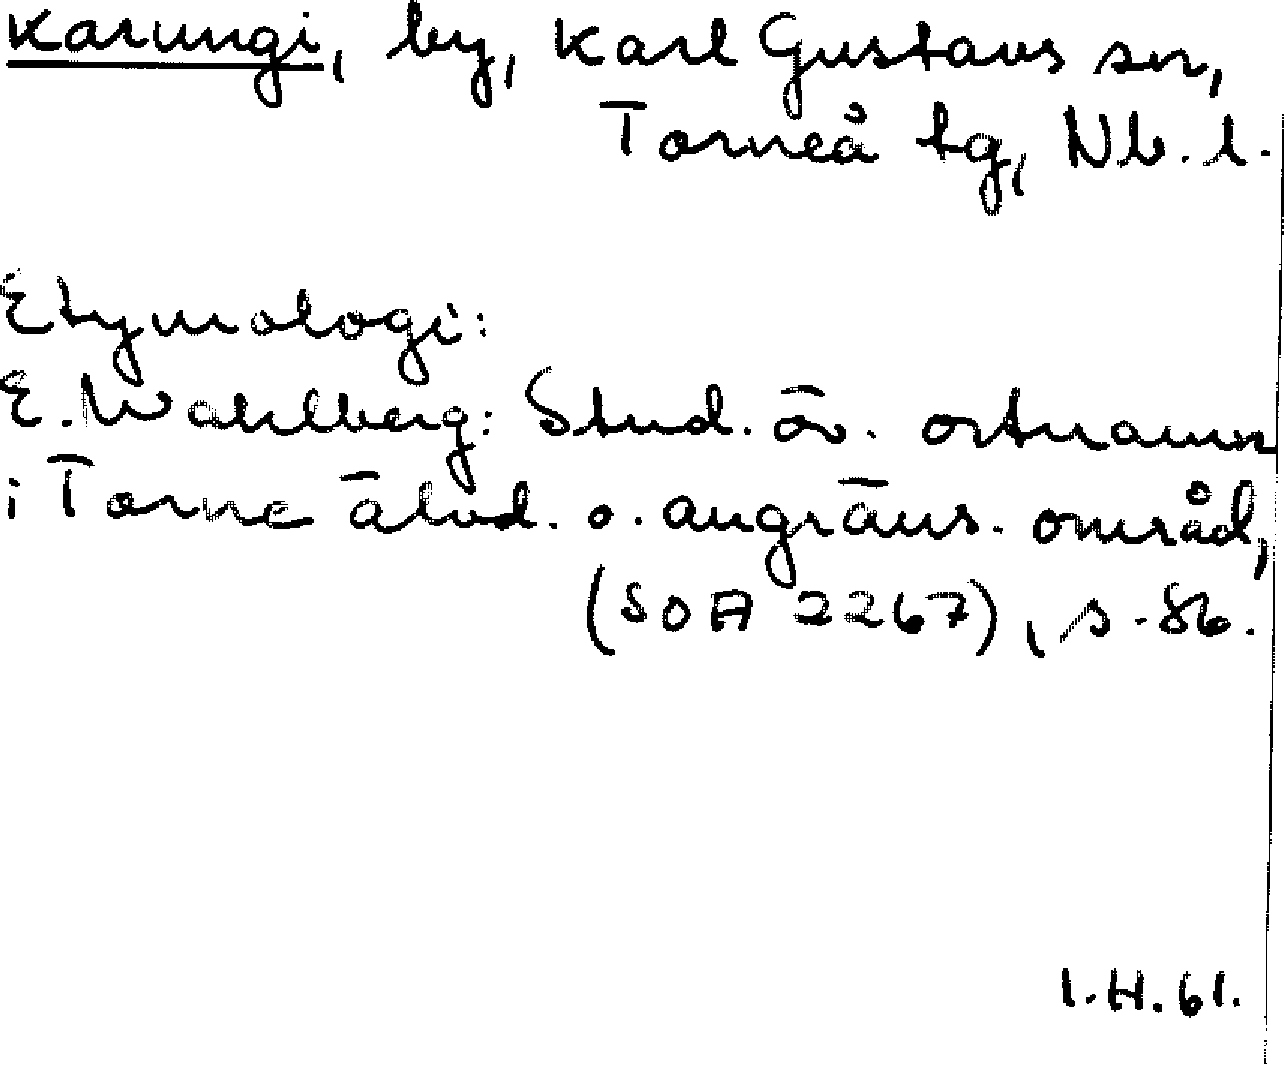 Karungi, by, Karl Gustavs sn,
Torneå tg, Nb. l.
Etymologi:
E. Wahlberg: Stud. öv. ortnamn
i Torne älvd. o. angräns. områd,
(SOA 2267), s. 86.
I.H. 61.